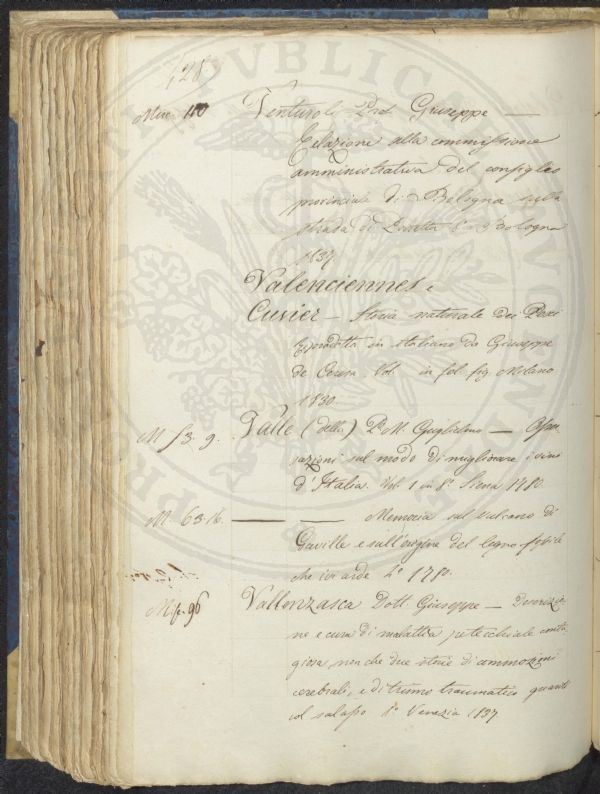 428
Misc. 110 Venturoli Prof. Giuseppe —
Relazione alla commissione
amministrativa del consiglio
provinciale di Bologna sulla
strada di Porretta 8° Bologna
1837.
Valenciennes e
Cuvier — Storia naturale dei Pesci
riprodotta in italiano da Giuseppe
de Cesare Vol. in fol. fig. Milano
1830.
M 53. 9. Valle (della) P. M. Guglielmo — Osser
vazioni sul modo di migliorare i vini
d'Italia. Vol. 1 in 8° Siena 1780.
M. 63. 16. — — Memoria sul vulcano di
Gaville e sull'origine del legno fossile
che ivi arde 4° 1780.
M. 96 Vallenzasca Dott. Giuseppe — Descrizio-
ne e cura di malattia petecchiale conta
giosa, non che due storie di commozioni
cerebrali, e di trismo traumatico guariti
col salasso 8° Venezia 1837